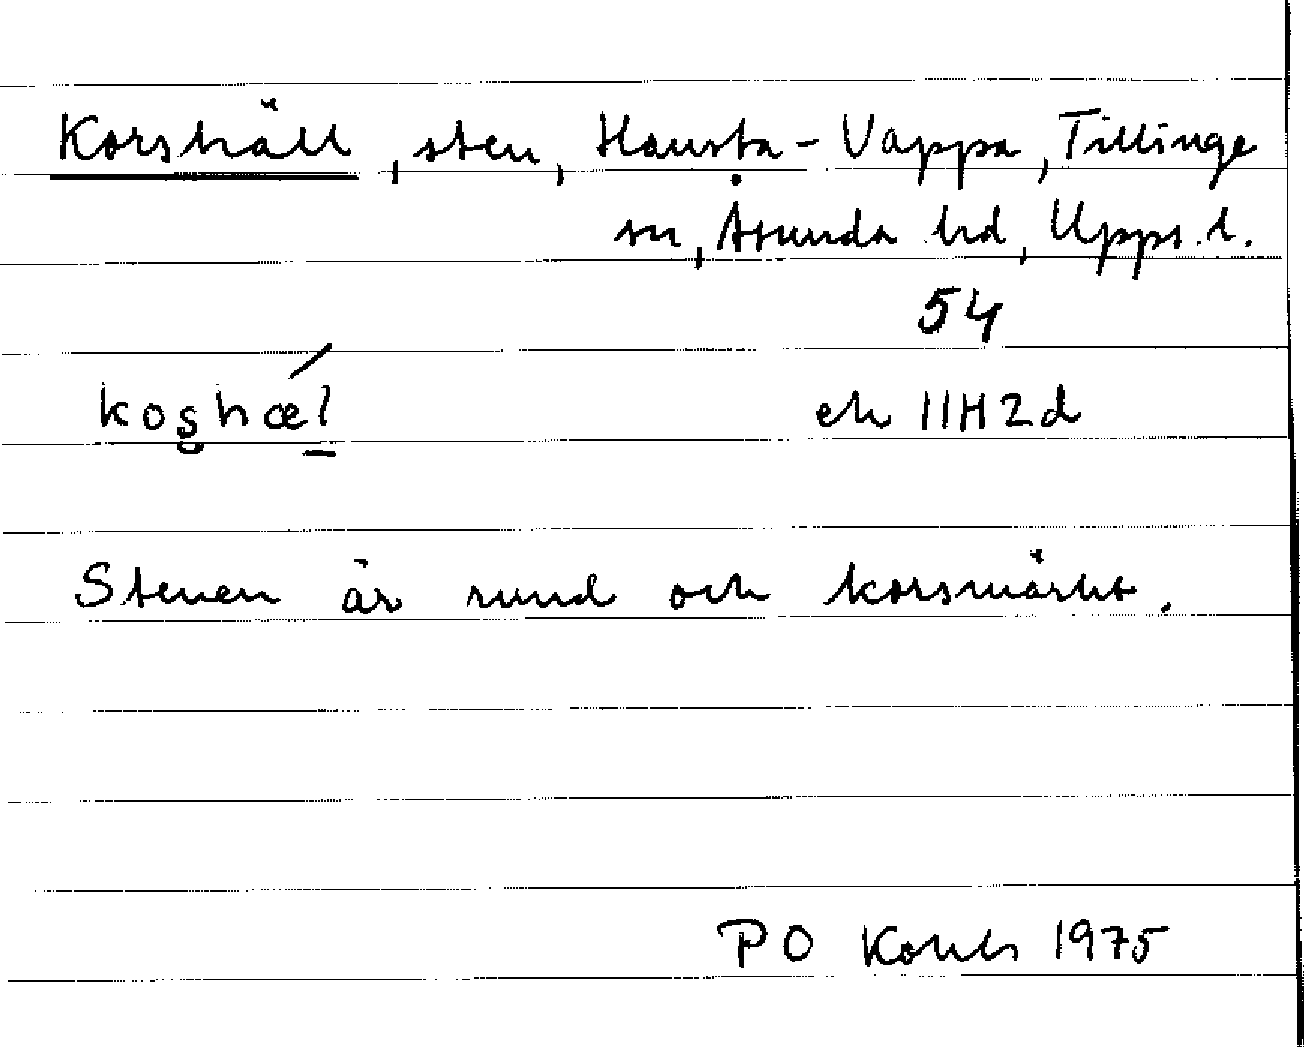 Korshäll, sten, Hausta-Vappa, Tillinge
sn, Åsunda hd, Upps. l.
54
koşhǽ̱l ek 11H2d
Stenen är rund och korsmärkt.
PO 1975